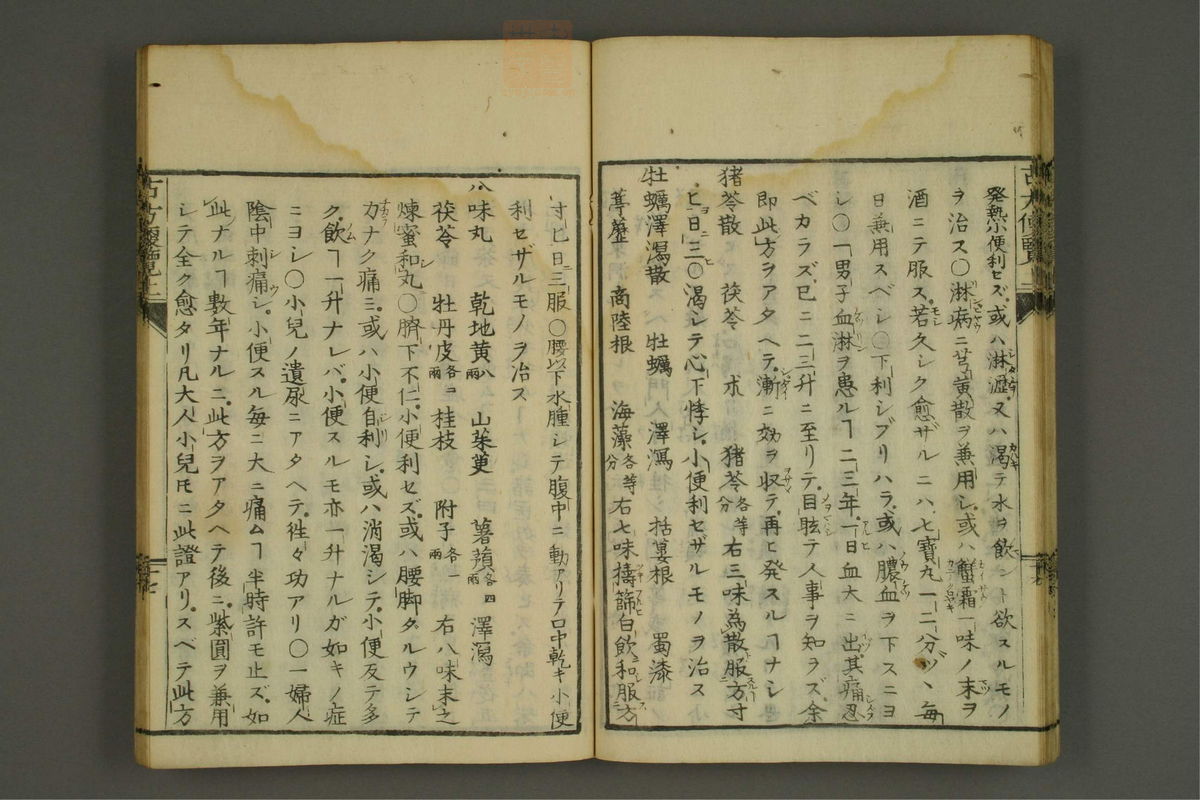 発熱小便利セズ或ハ淋瀝又ハ渇テ水ヲ飲ント欲スルモノ
ヲ治ス〇淋病ニ芒黄散ヲ兼用シ或ハ蟹霜一味ノ末ヲ
酒ニテ服ス若久シク愈ザルニハ七寳丸一二分ヅヽ毎
日兼用スベシ〇下利シブリハラ或ハ膿血ヲ下スニヨ
シ〇一男子血淋ヲ患ルヿ二三年一日血大ニ出其痛忍
ベカラズ已ニ二三升ニ至リテ目眩テ人事ヲ知ラズ余
即此方ヲアタヘテ漸ニ効ヲ収テ再ヒ発スルヿナシ
猪苓散 茯苓 朮 猪苓各等分 右三味為散服方寸
ヒ日三〇渇シテ心下悸シ小便利セザルモノヲ治ス
牡蠣澤瀉散 牡蠣 澤瀉 括蔞根 蜀漆
葶藶 商陸根 海藻各等分 右七味擣篩白飲和服方
寸匕日三服〇腰以下水腫シテ腹中ニ動アリテ口中乾キ小便
利セザルモノヲ治ス
八味丸 乾地黄八兩 山茱萸 薯蕷各四兩 澤瀉
茯苓 牡丹皮各三兩 桂枝 附子各一兩 右八味末之
煉蜜和丸〇臍下不仁小便利セズ或ハ腰脚ダルウシテ
カナク痛ミ或ハ小便自利シ或ハ消渇シテ小便反テ多
ク飲ヿ一升ナレバ小便スルモ亦一升ナルガ如キノ症
ニヨシ〇小兒ノ遺尿ニアタヘテ徃々功アリ〇一婦人
陰中刺痛シ小便スル毎ニ大ニ痛ムヿ半時許モ止ズ如
此ナルヿ數年ナルニ此方ヲアタヘテ後ニ紫圓ヲ兼用
シテ全ク愈タリ凡大人小兒モニ此證アリスベテ此方